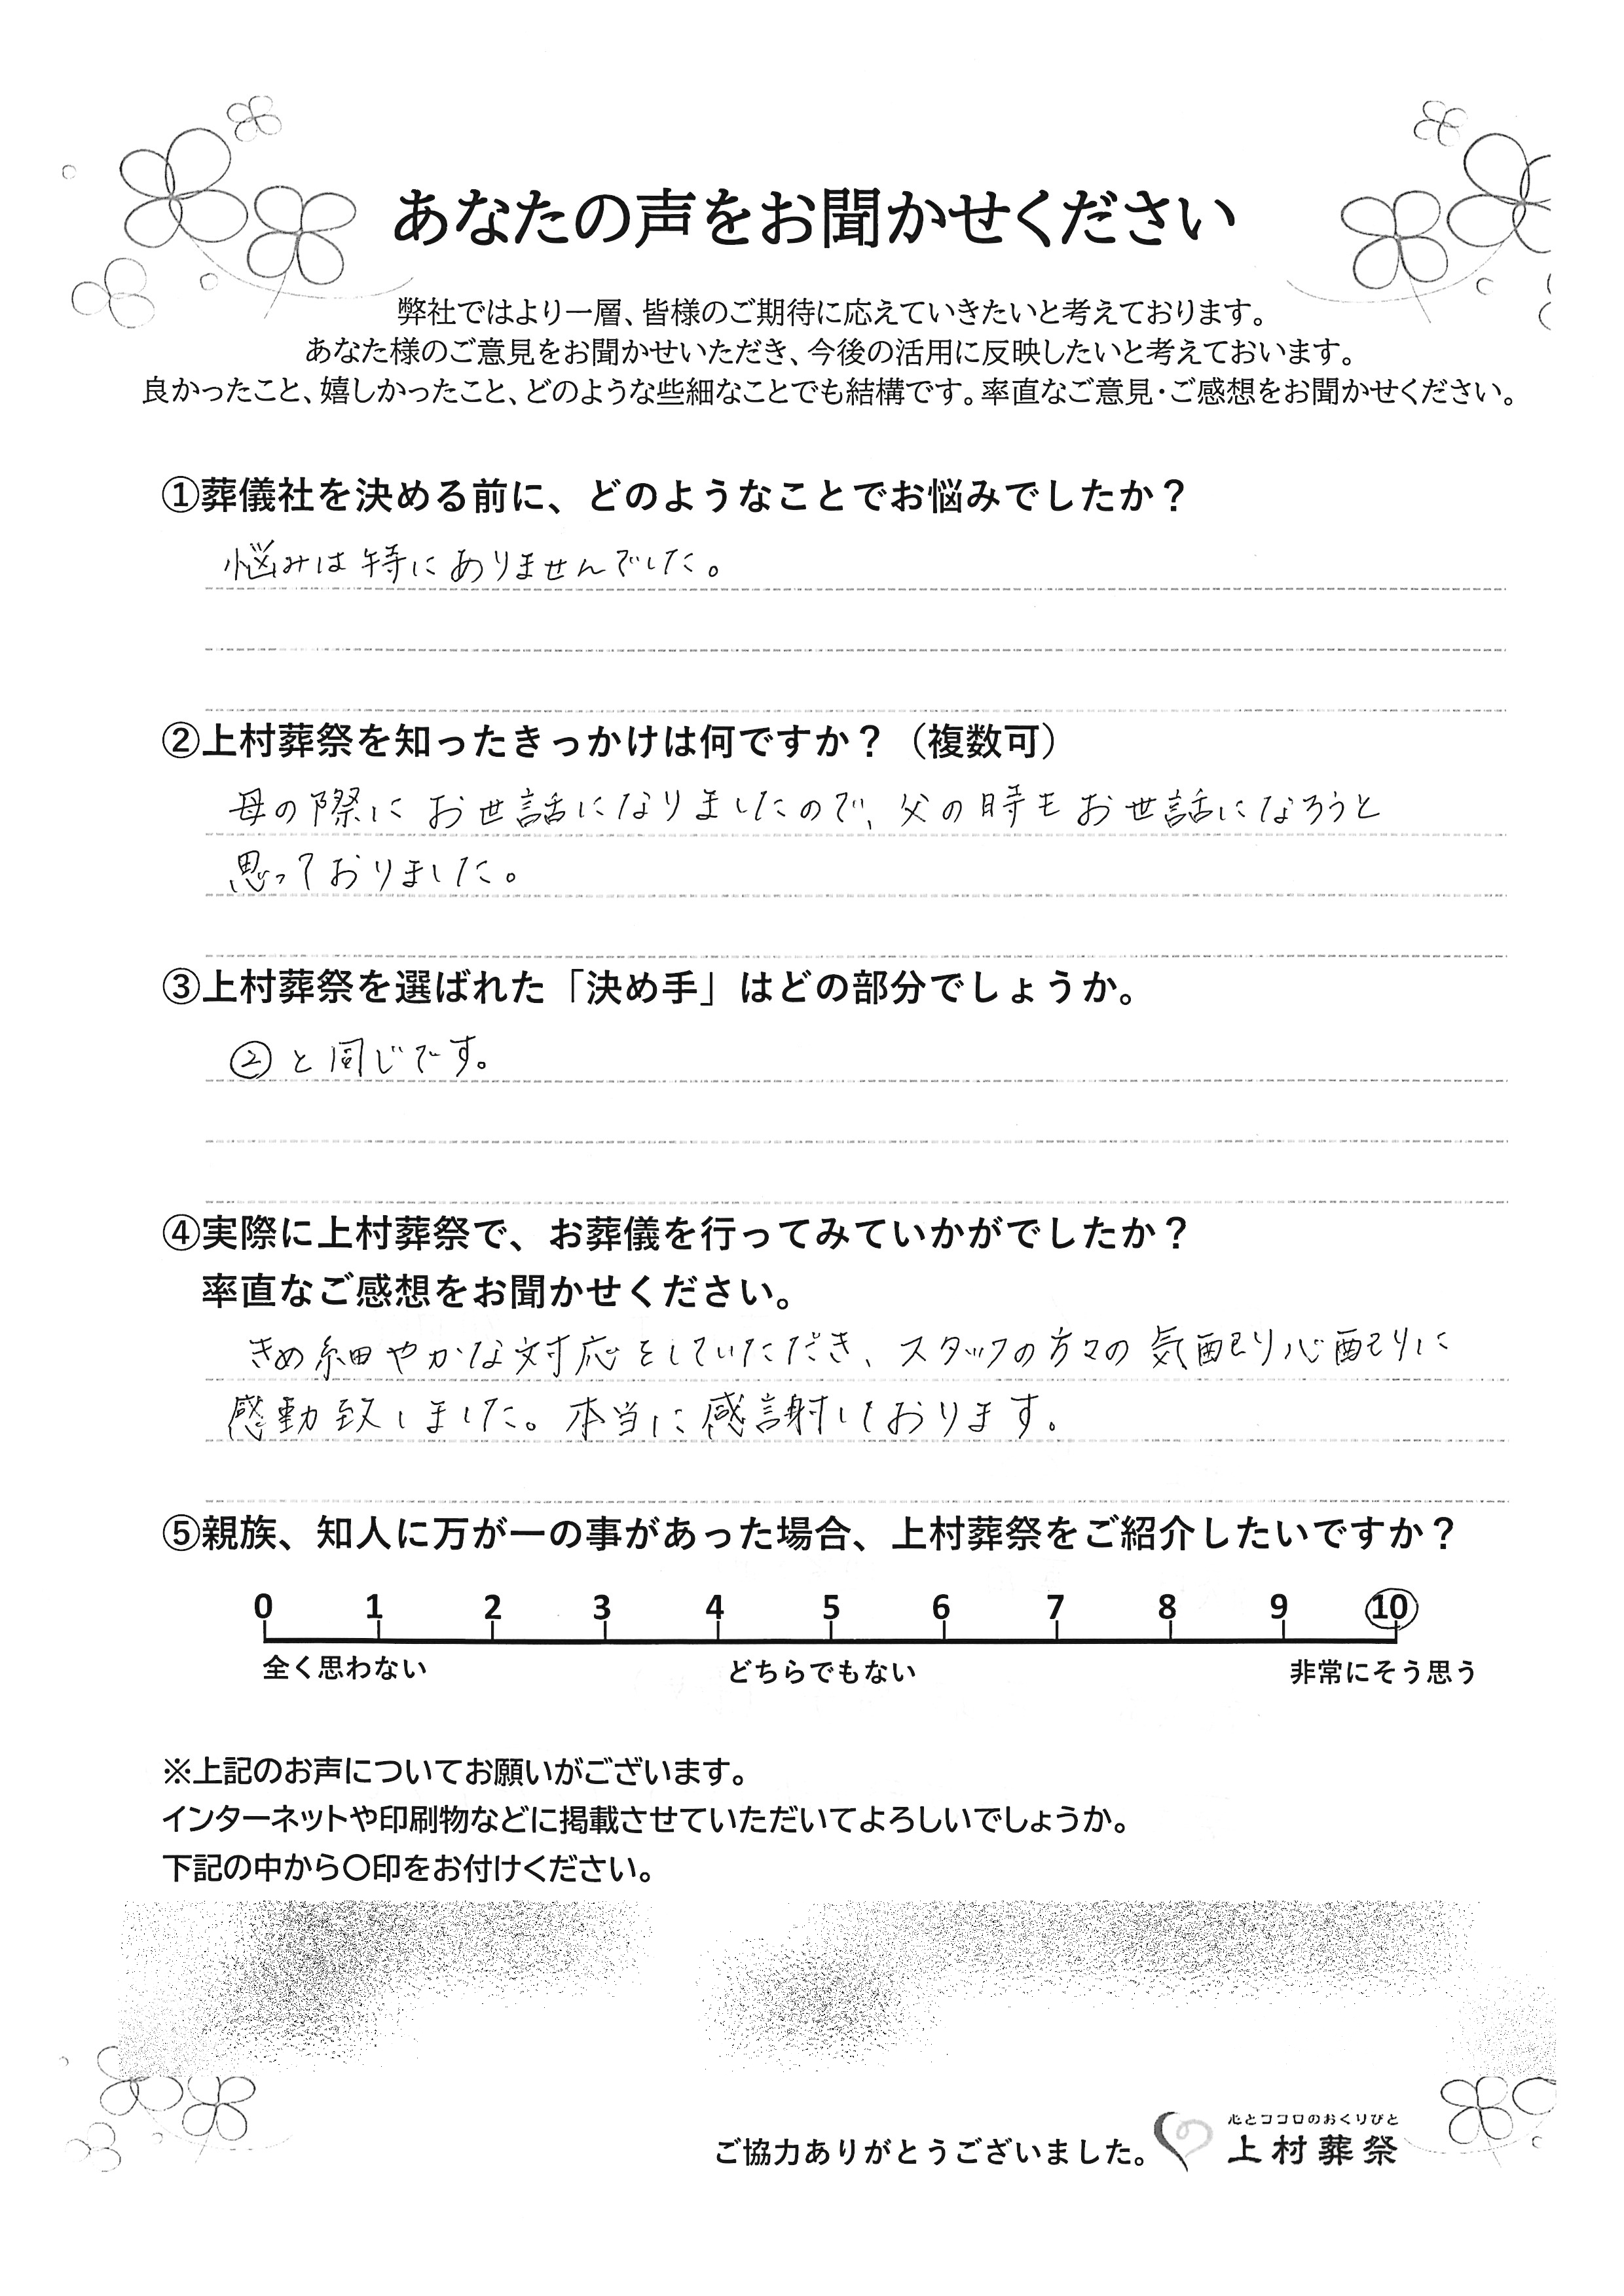 あなたの声をお聞かせください
弊社ではより一層、皆様のご期待に応えていきたいと考えております。
あなた様のご意見をお聞かせいただき、今後の活用に反映したいと考えておいます。
良かったこと、嬉しかったこと、どのような些細なことでも結構です。率直なご意見・ご感想をお聞かせください。
①葬儀社を決める前に、どのようなことでお悩みでしたか？
悩みは特にありませんでした。
②上村葬祭を知ったきっかけは何ですか？（複数可）
母の際にお世話になりましたので、父の時もお世話になろうと
思っておりました。
③上村葬祭を選ばれた「決め手」はどの部分でしょうか。
②と同じです。
④実際に上村葬祭で、お葬儀を行ってみていかがでしたか？
率直なご感想をお聞かせください。
きめ細やかな対応をしていただき、スタッフの方々の気配り心配りに
感動致しました。本当に感謝しております。
⑤親族、知人に万が一の事があった場合、上村葬祭をご紹介したいですか？
0 1 2 3 4 5 6 7 8 9 10
全く思わない どちらでもない 非常にそう思う
※上記のお声についてお願いがございます。
インターネットや印刷物などに掲載させていただいてよろしいでしょうか。
下記の中から〇印をお付けください。
心とココロのおくりびと
ご協力ありがとうございました。 上村葬祭